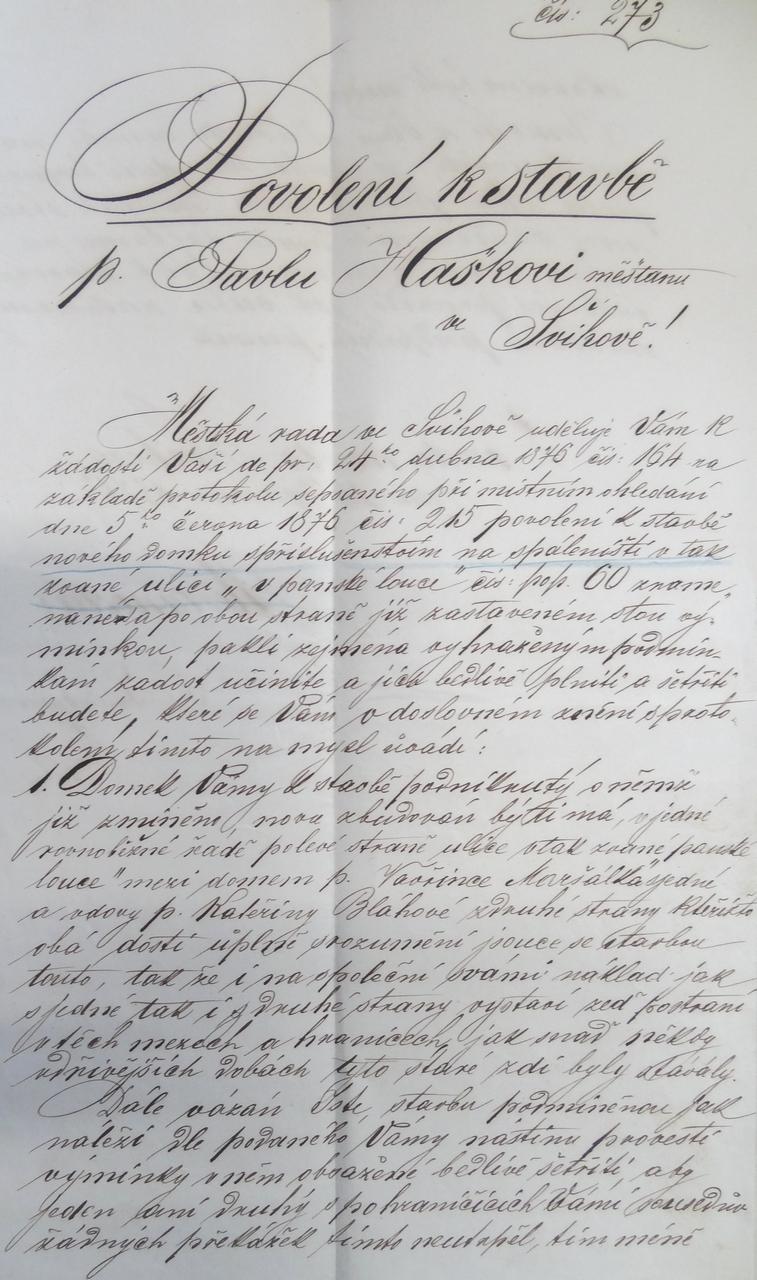 čís: 273
Povolení k stavbě
p. Pavlu Haškovi měšťanu
ve Švihově!
Městká rada ve Švihově uděluje Vám k
žádosti Vaší de pr: 24ho dubna 1876 čís: 164 na
základě protokolu sepsaného při místním ohledání
dne 5ho června 1876 čís: 215 povolení k stavbě
nového domku s příslušenstvím na spáleništi v tak
zvané ulici „v panské louce" čís: pop. 60 zname„
naném a po obou straně již zastaveném s tou vý„
mínkou, pakli zejména vyhraženým podmín„
kám zadost učiníte a jich bedlivě plniti a šetřiti
budete, které se Vám v doslovném znění s proto„
kolem tímto na mysl uvádí:
1. Domek Vámy k stavbě podniknutý o němž
již zmíněm, nova zbudován býti má, v jedné
rovnoběžné řadě po levé straně ulice v tak zvané panské
louce" mezi domem p. Vavřince Maršálka s jedné
a vdovy p. Kateřiny Bláhové z druhé strany kteřížto
obá dosti úplně srozumění jsouce se stavbou
touto, tak že i na společní s vámi náklad jak
s jedné tak i z druhé strany vystaví zeď postraní
v těch mezech a hranicech, jak snad někdy
v dřívějších dobách tyto staré zdi byly stávaly.
Dále vázán Jste, stavbu podmíněnou jak
náleží dle podaného Vámy nástinu provesti
výmínky v něm obsažené bedlivě šetřiti, aby
jeden ani druhý s pohraničících Vámi sousedův
žádných překážek tímto neutrpěl, tím méně